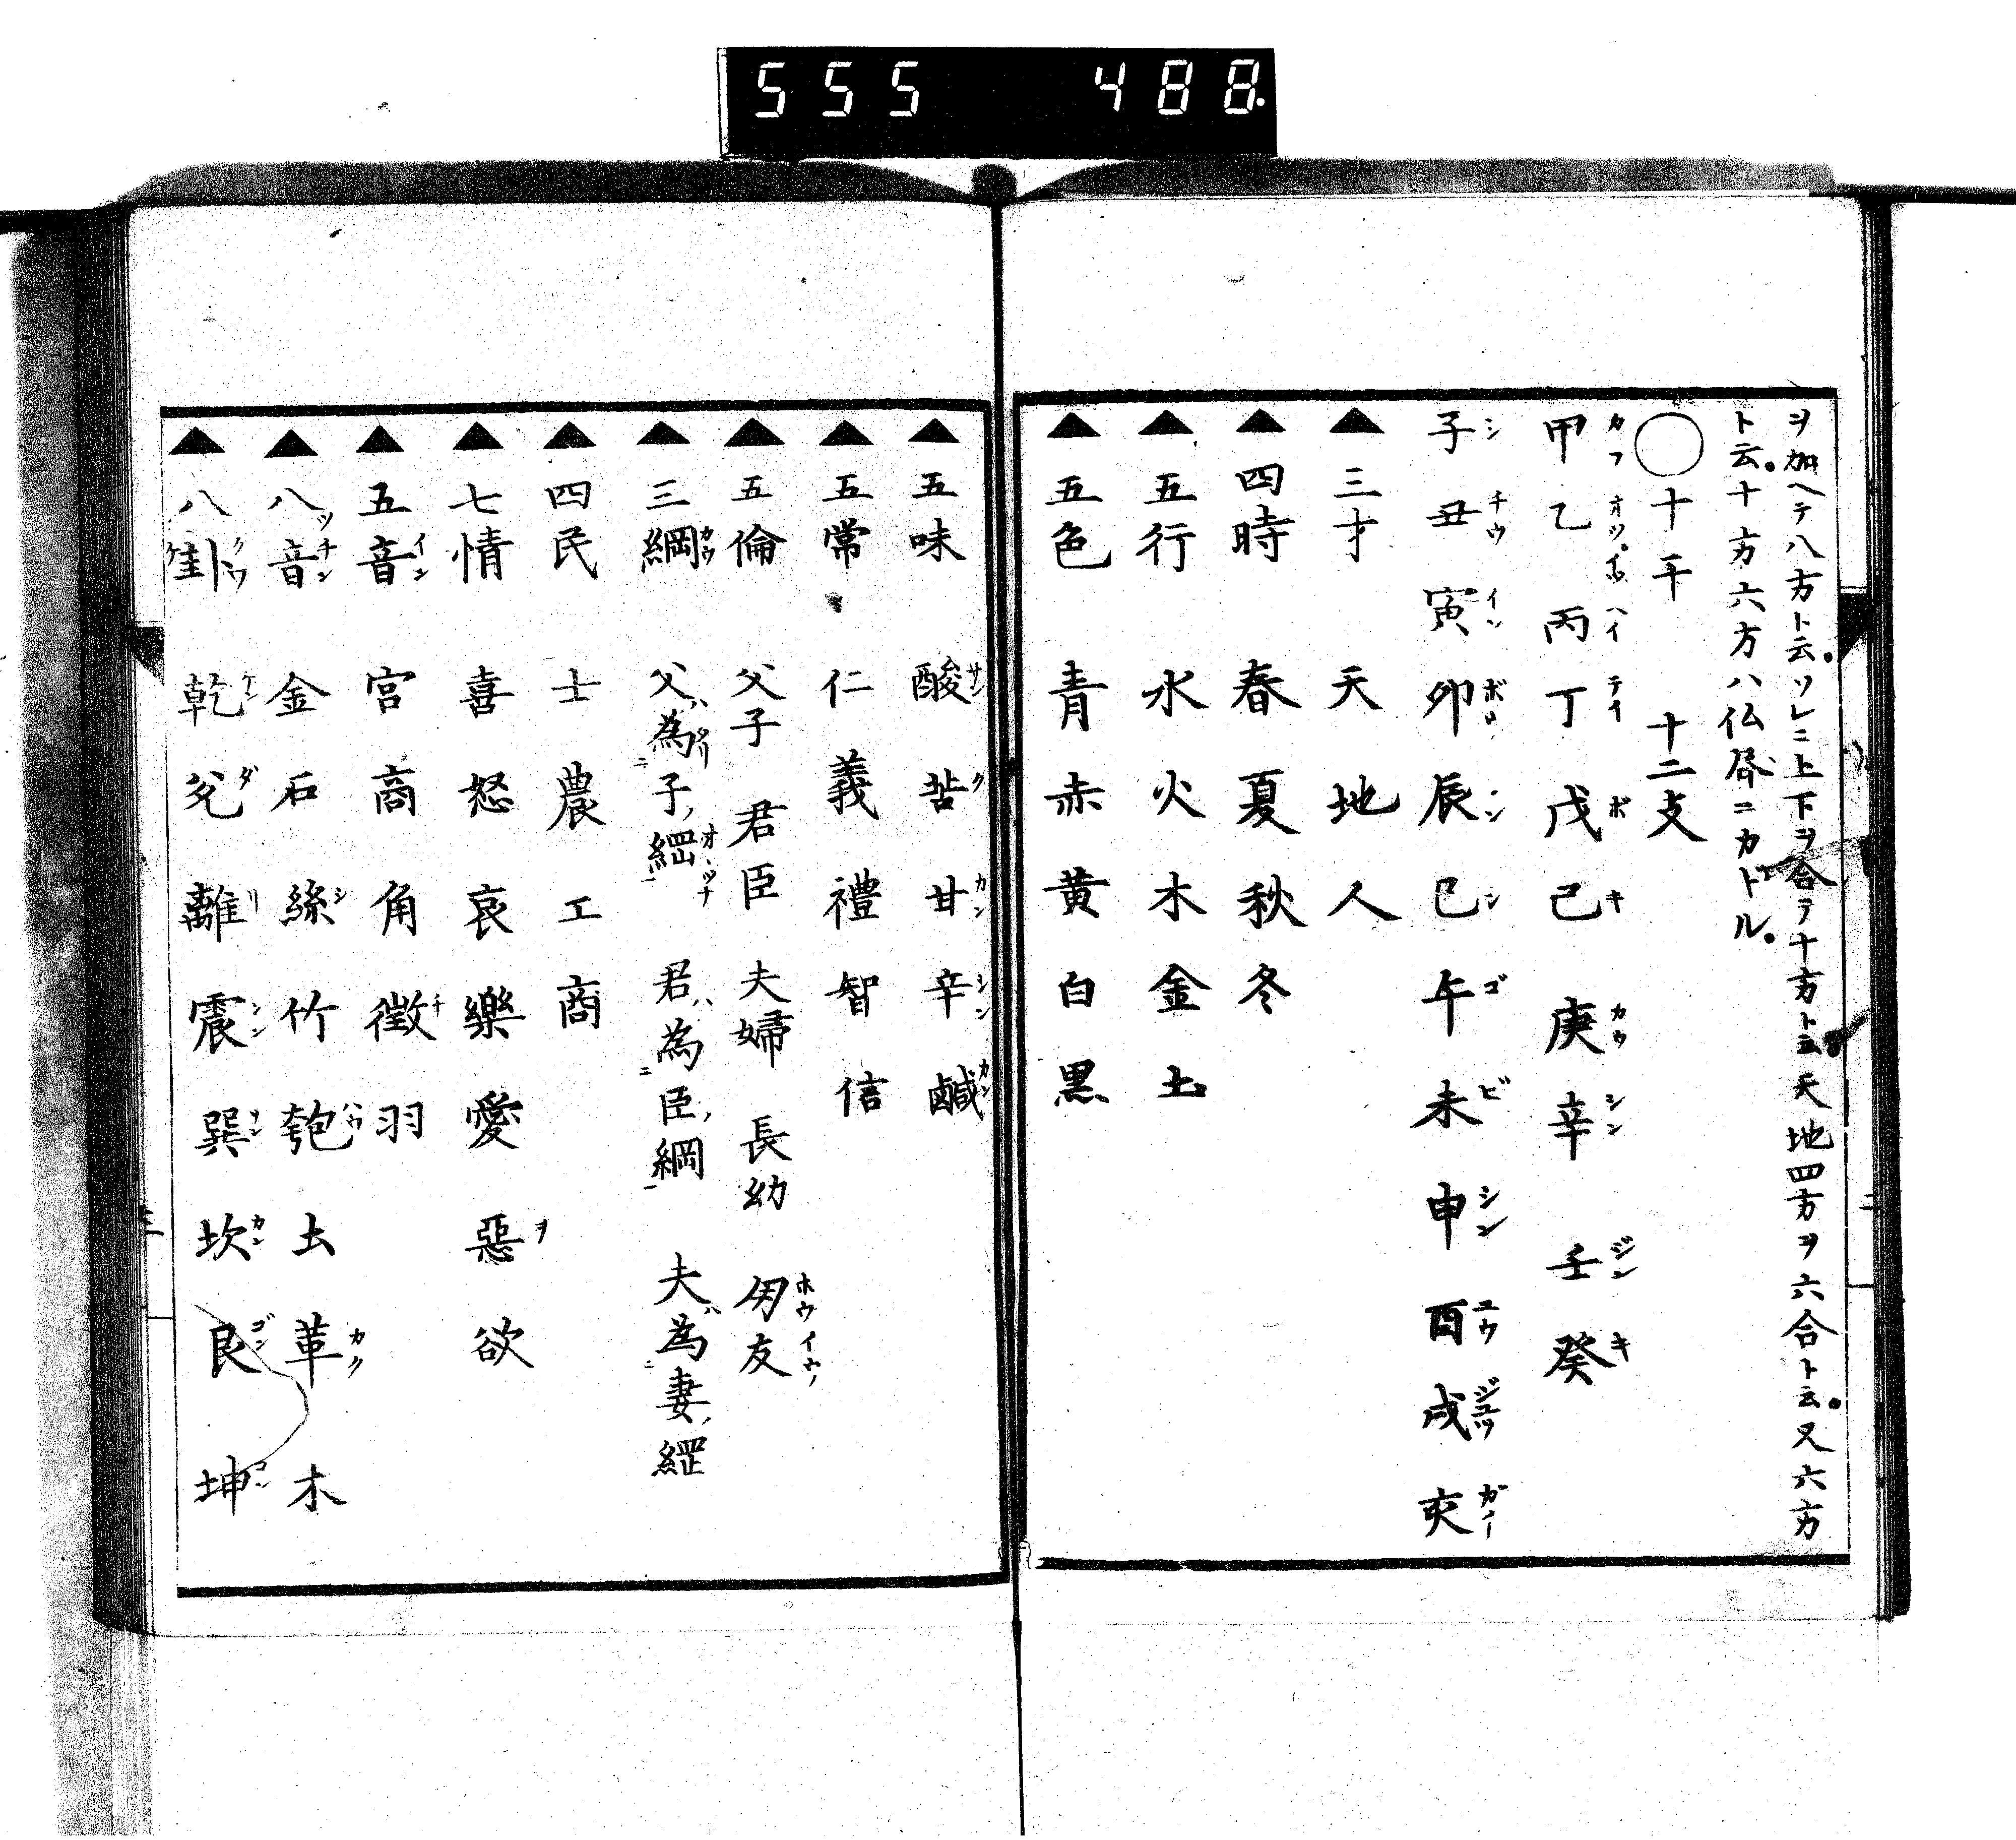 555 488.
ヲ加ヘテ八方ト云。ソレニ上下ヲ合テ十方ト云天地四方ヲ六合ト云。又六方
ト云。十方六方ハ仏居ニカトル。
〇十干 十二支
甲乙丙丁戊己庚辛壬癸
子丑寅卯辰巳午未申酉戌亥
▲三才 天地人
▲四時 春夏秋冬
▲五行 水火木金土
▲五色 青赤黄白黒
▲五味 酸苦甘辛鹹
▲五常 仁義禮智信
▲五倫 父子 君臣 夫婦 長幼 朋友
▲三綱 父為子綱 君為臣綱 夫為妻綱
▲四民 士農工商
▲七情 喜怒哀樂愛惡欲
▲五音 宮商角徵羽
▲八音 金石絲竹匏土革木
▲八卦 乾兌離震巽坎艮坤